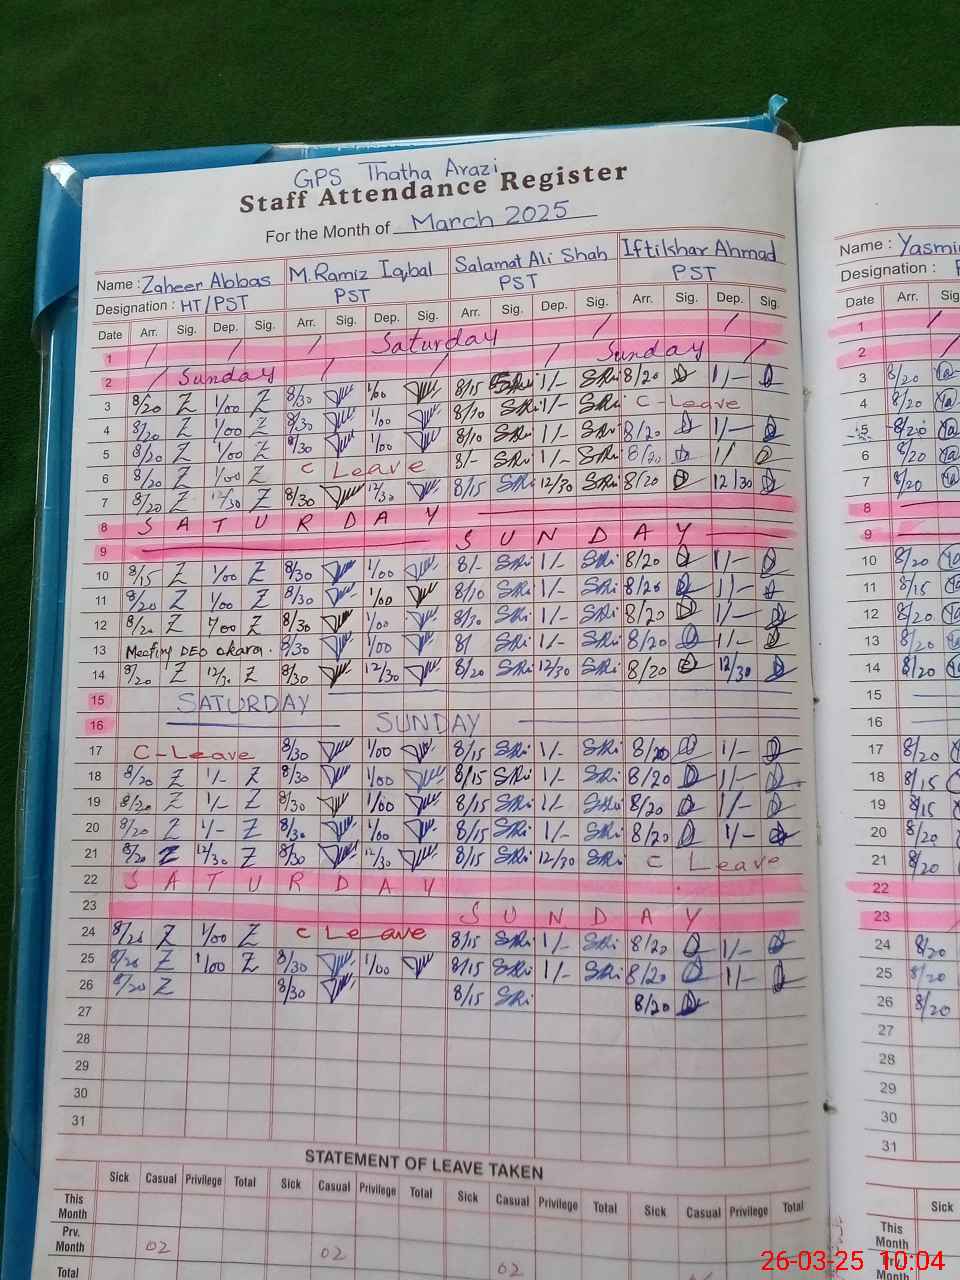 GPS Thatha Arazi
Staff Attendance Register
For the Month of March 2025
Name : Zaheer Abbas M. Ramiz Iqbal Salamat Ali Shah Iftikhar Ahmad
Designation : HT/PST PST PST PST
Date Arr. Sig. Dep. Sig. Arr. Sig. Dep. Sig. Arr. Sig. Dep. Sig. Arr. Sig. Dep. Sig.
1 Saturday
2 Sunday Sunday
3 8/20 Z 1/00 Z 8/30 1/00 8/15 1/- 8/20 1/-
4 8/20 Z 1/00 Z 8/30 1/00 8/10 1/- C-Leave
5 8/20 Z 1/00 Z 8/30 1/00 8/10 1/- 8/20 1/-
6 8/20 Z 1/00 Z C Leave 8/- 1/- 8/20 1/
7 8/20 Z 12/30 Z 8/30 12/30 8/15 12/30 8/20 12/30
8 SATURDAY
9 SUNDAY
10 8/15 Z 1/00 Z 8/30 1/00 8/- 1/- 8/20 1/-
11 8/20 Z 1/00 Z 8/30 1/00 8/10 1/- 8/20 1/-
12 Z Z 8/30 1/00 1/- 8/20 1/-
13 Meeting DEO okara. 8/30 1/00 8/ 1/- 8/20 1/-
14 8/20 Z Z 8/30 12/30 8/20 12/30 8/20 12/30
15 SATURDAY
16 SUNDAY
17 C-Leave 8/30 1/00 8/15 1/- 8/20 1/-
18 8/20 Z 1/- Z 8/30 1/00 8/15 1/- 8/20 1/-
19 8/20 Z 1/- Z 8/30 1/00 8/15 1/- 8/20 1/-
20 8/20 Z 1/- Z 8/30 1/00 8/15 1/- 8/20 1/-
21 8/20 Z 12/30 Z 8/30 12/30 8/15 12/30 C Leave
22 SATURDAY
23 SUNDAY
24 Z 1/00 Z C Leave 8/15 1/- 8/20 1/-
25 Z 1/00 Z 8/30 1/00 8/15 1/- 8/20 1/-
26 8/20 Z 8/30 8/15 8/20
27
28
29
30
31
STATEMENT OF LEAVE TAKEN
Sick Casual Privilege Total Sick Casual Privilege Total Sick Casual Privilege Total Sick Casual Privilege Total
This Month
Prv. Month 02 02 02
Total
Name :
Designation :
Date Arr.
1
2
3 8/20
4 8/20
5 8/20
6 8/20
7 8/20
8
9
10 8/20
11 8/15
12 8/20
13 8/20
14 8/20
15
16
17 8/20
18 8/15
19 8/15
20 8/20
21 8/20
22
23
24 8/20
25 8/20
26 8/20
27
28
29
30
31
Sick
This Month
Prv. Month
26-03-25 10:04